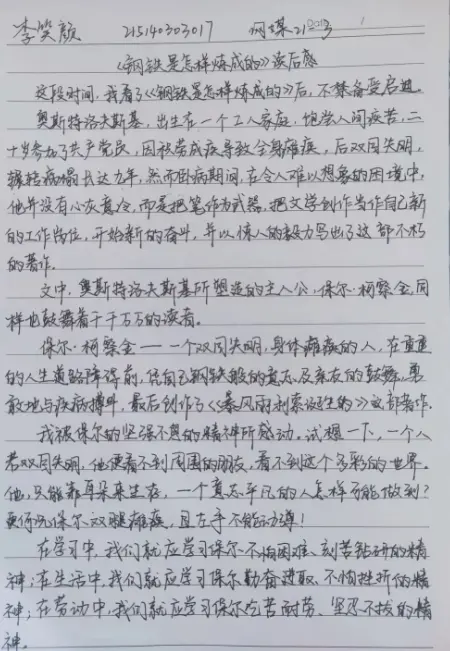 李笑颜 21540303017 网媒21
《钢铁是怎样炼成的》读后感
这段时间,我看了《钢铁是怎样炼成的》后,不禁备受启迪。
奥斯特洛夫斯基,出生在一个工人家庭,饱尝人间疾苦,二
十岁参加了共产党员,因被劳成疾导致全身瘫痪,后双目失明,
辗转病榻长达九年,然而卧病期间,在令人难以想象的困境中,
他并没有心灰意冷,而是把笔作为武器,把文学创作当作自己新
的工作岗位,开始新的奋斗,并以惊人的毅力写出了这部不朽
的著作。
文中,奥斯特洛夫斯基所塑造的主人公,保尔·柯察金,同
样也鼓舞着千千万万的读者。
保尔·柯察金——一个双目失明,身体瘫痪的人,在重重
的人生道路障碍前,凭自己钢铁般的意志及亲友的鼓舞,勇
敢地与疾病搏斗,最后创作了《暴风雨所诞生的》这部著作.
我被保尔的坚强不息的精神所感动。试想一下,一个人
若双目失明,他便看不到周围的朋友,看不到这个多彩的世界。
他,只能靠耳朵来生存,一个意志平凡的人怎样才能做到?
更何况保尔双腿瘫痪,且左手不能动弹!
在学习中,我们就应学习保尔不怕困难、刻苦钻研的精
神;在生活中,我们就应学习保尔勤奋进取、不怕挫折的精
神;在劳动中,我们就应学习保尔吃苦耐劳、坚忍不拔的精
神。